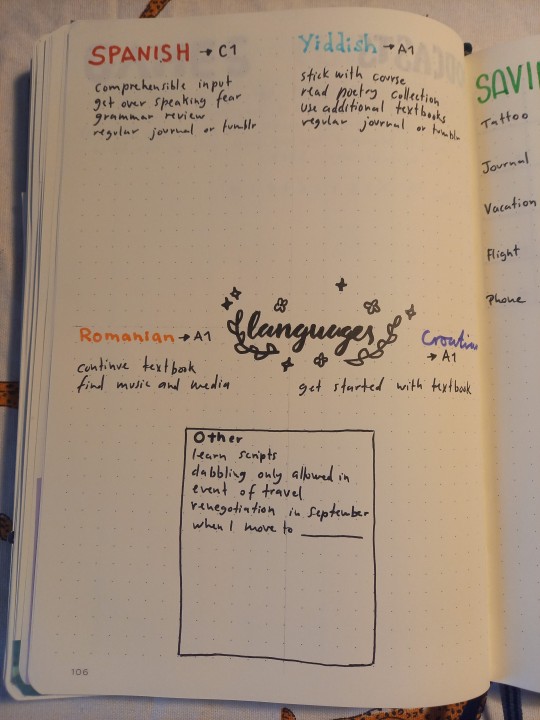 SPANISH → C1
comprehensible input
get over speaking fear
grammar review
regular journal or tumblr
Yiddish → A1
stick with course
read poetry collection
use additional textbooks
regular journal or tumblr
languages
Romanian → A1
continue textbook
find music and media
Croatian
→ A1
get started with textbook
Other
learn scripts
dabbling only allowed in
event of travel
renegotiation in September
when I move to ________
106
SAVI
Tattoo
Journal
Vacation
Flight
Phone